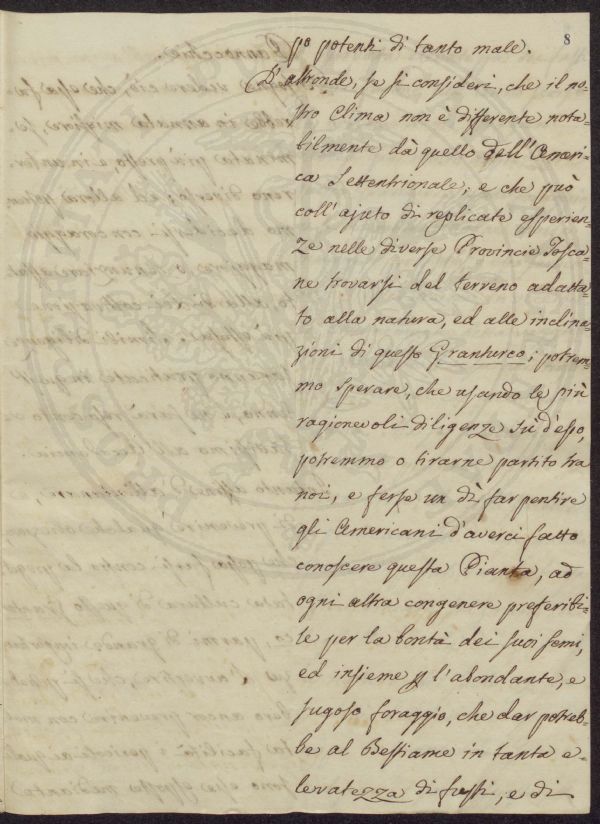 8
po potenti di tanto male.
D'altronde, se si consideri, che il no=
stro Clima non è differente nota=
bilmente dà quello dell'Ameri=
ca Settentrionale; e che può
coll'ajuto di replicate esperien=
ze nelle diverse Provincie Tosca=
ne trovarsi del terreno adatta=
to alla natura, ed alle inclina=
zioni di questo Granturco; potrem=
mo sperare, che usando le più
ragionevoli diligenze su d'esso,
potremmo o tirarne partito tra
noi, e forse un dì far pentire
gli Americani d'averci fatto
conoscere questa Pianta, ad
ogni altra congenere preferibi=
le per la bontà dei suoi semi,
ed insieme p l'abondante, e
sugoso foraggio, che dar potreb=
be al Bestiame in tanta e=
levatezza di fusti, e di